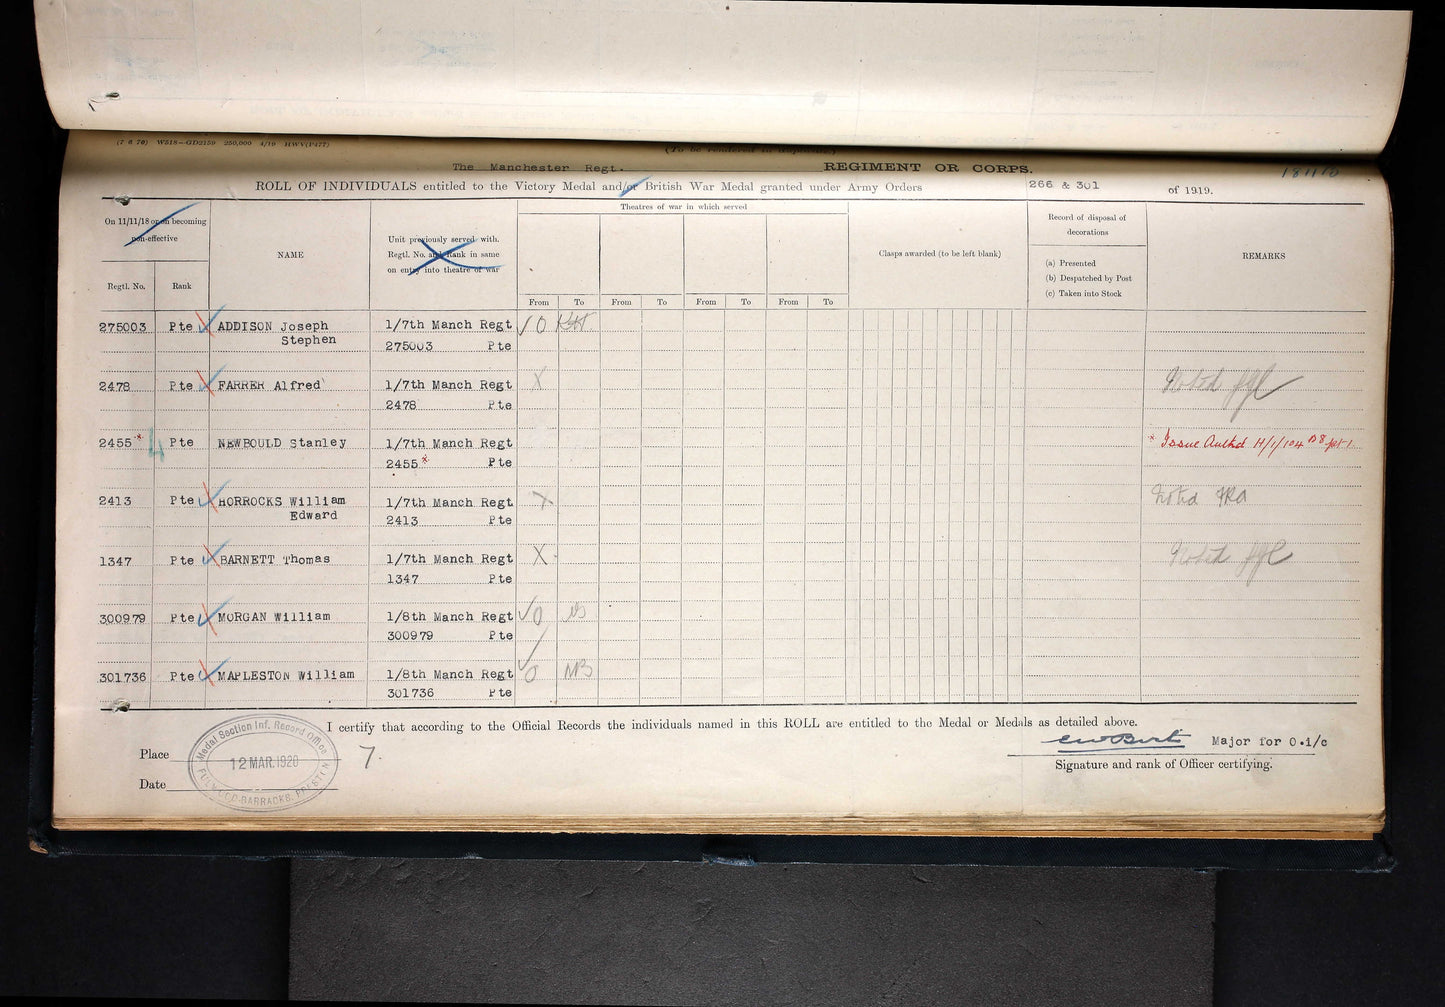 (7 6 70) W518—GD2159 250,000 4/19 HWV(P477)
(To be rendered in duplicate.)
The Manchester Regt. REGIMENT OR CORPS.
ROLL OF INDIVIDUALS entitled to the Victory Medal and/or British War Medal granted under Army Orders 266 & 301 of 1919.
On 11/11/18 or on becoming
non-effective
Regtl. No.
Rank
NAME
Unit previously served with.
Regtl. No. and Rank in same
on entry into theatre of war
Theatres of war in which served
From To From To From To From To
Clasps awarded (to be left blank)
Record of disposal of
decorations
(a) Presented
(b) Despatched by Post
(c) Taken into Stock
REMARKS
275003 Pte ADDISON Joseph 1/7th Manch Regt O
Stephen 275003 Pte
2478 Pte FARRER Alfred 1/7th Manch Regt X Noted
2478 Pte
2455* 4 Pte NEWBOULD Stanley 1/7th Manch Regt * Issue Authd H/1/104
2455* Pte
2413 Pte HORROCKS William 1/7th Manch Regt X Noted
Edward 2413 Pte
1347 Pte BARNETT Thomas 1/7th Manch Regt X Noted
1347 Pte
300979 Pte MORGAN William 1/8th Manch Regt O
300979 Pte
301736 Pte MAPLESTON William 1/8th Manch Regt O
301736 Pte
I certify that according to the Official Records the individuals named in this ROLL are entitled to the Medal or Medals as detailed above.
Place
Date
Medal Section Inf. Record Office
12 MAR. 1920
FULWOOD-BARRACKS, PRESTON
7.
Major for O.i/c
Signature and rank of Officer certifying.